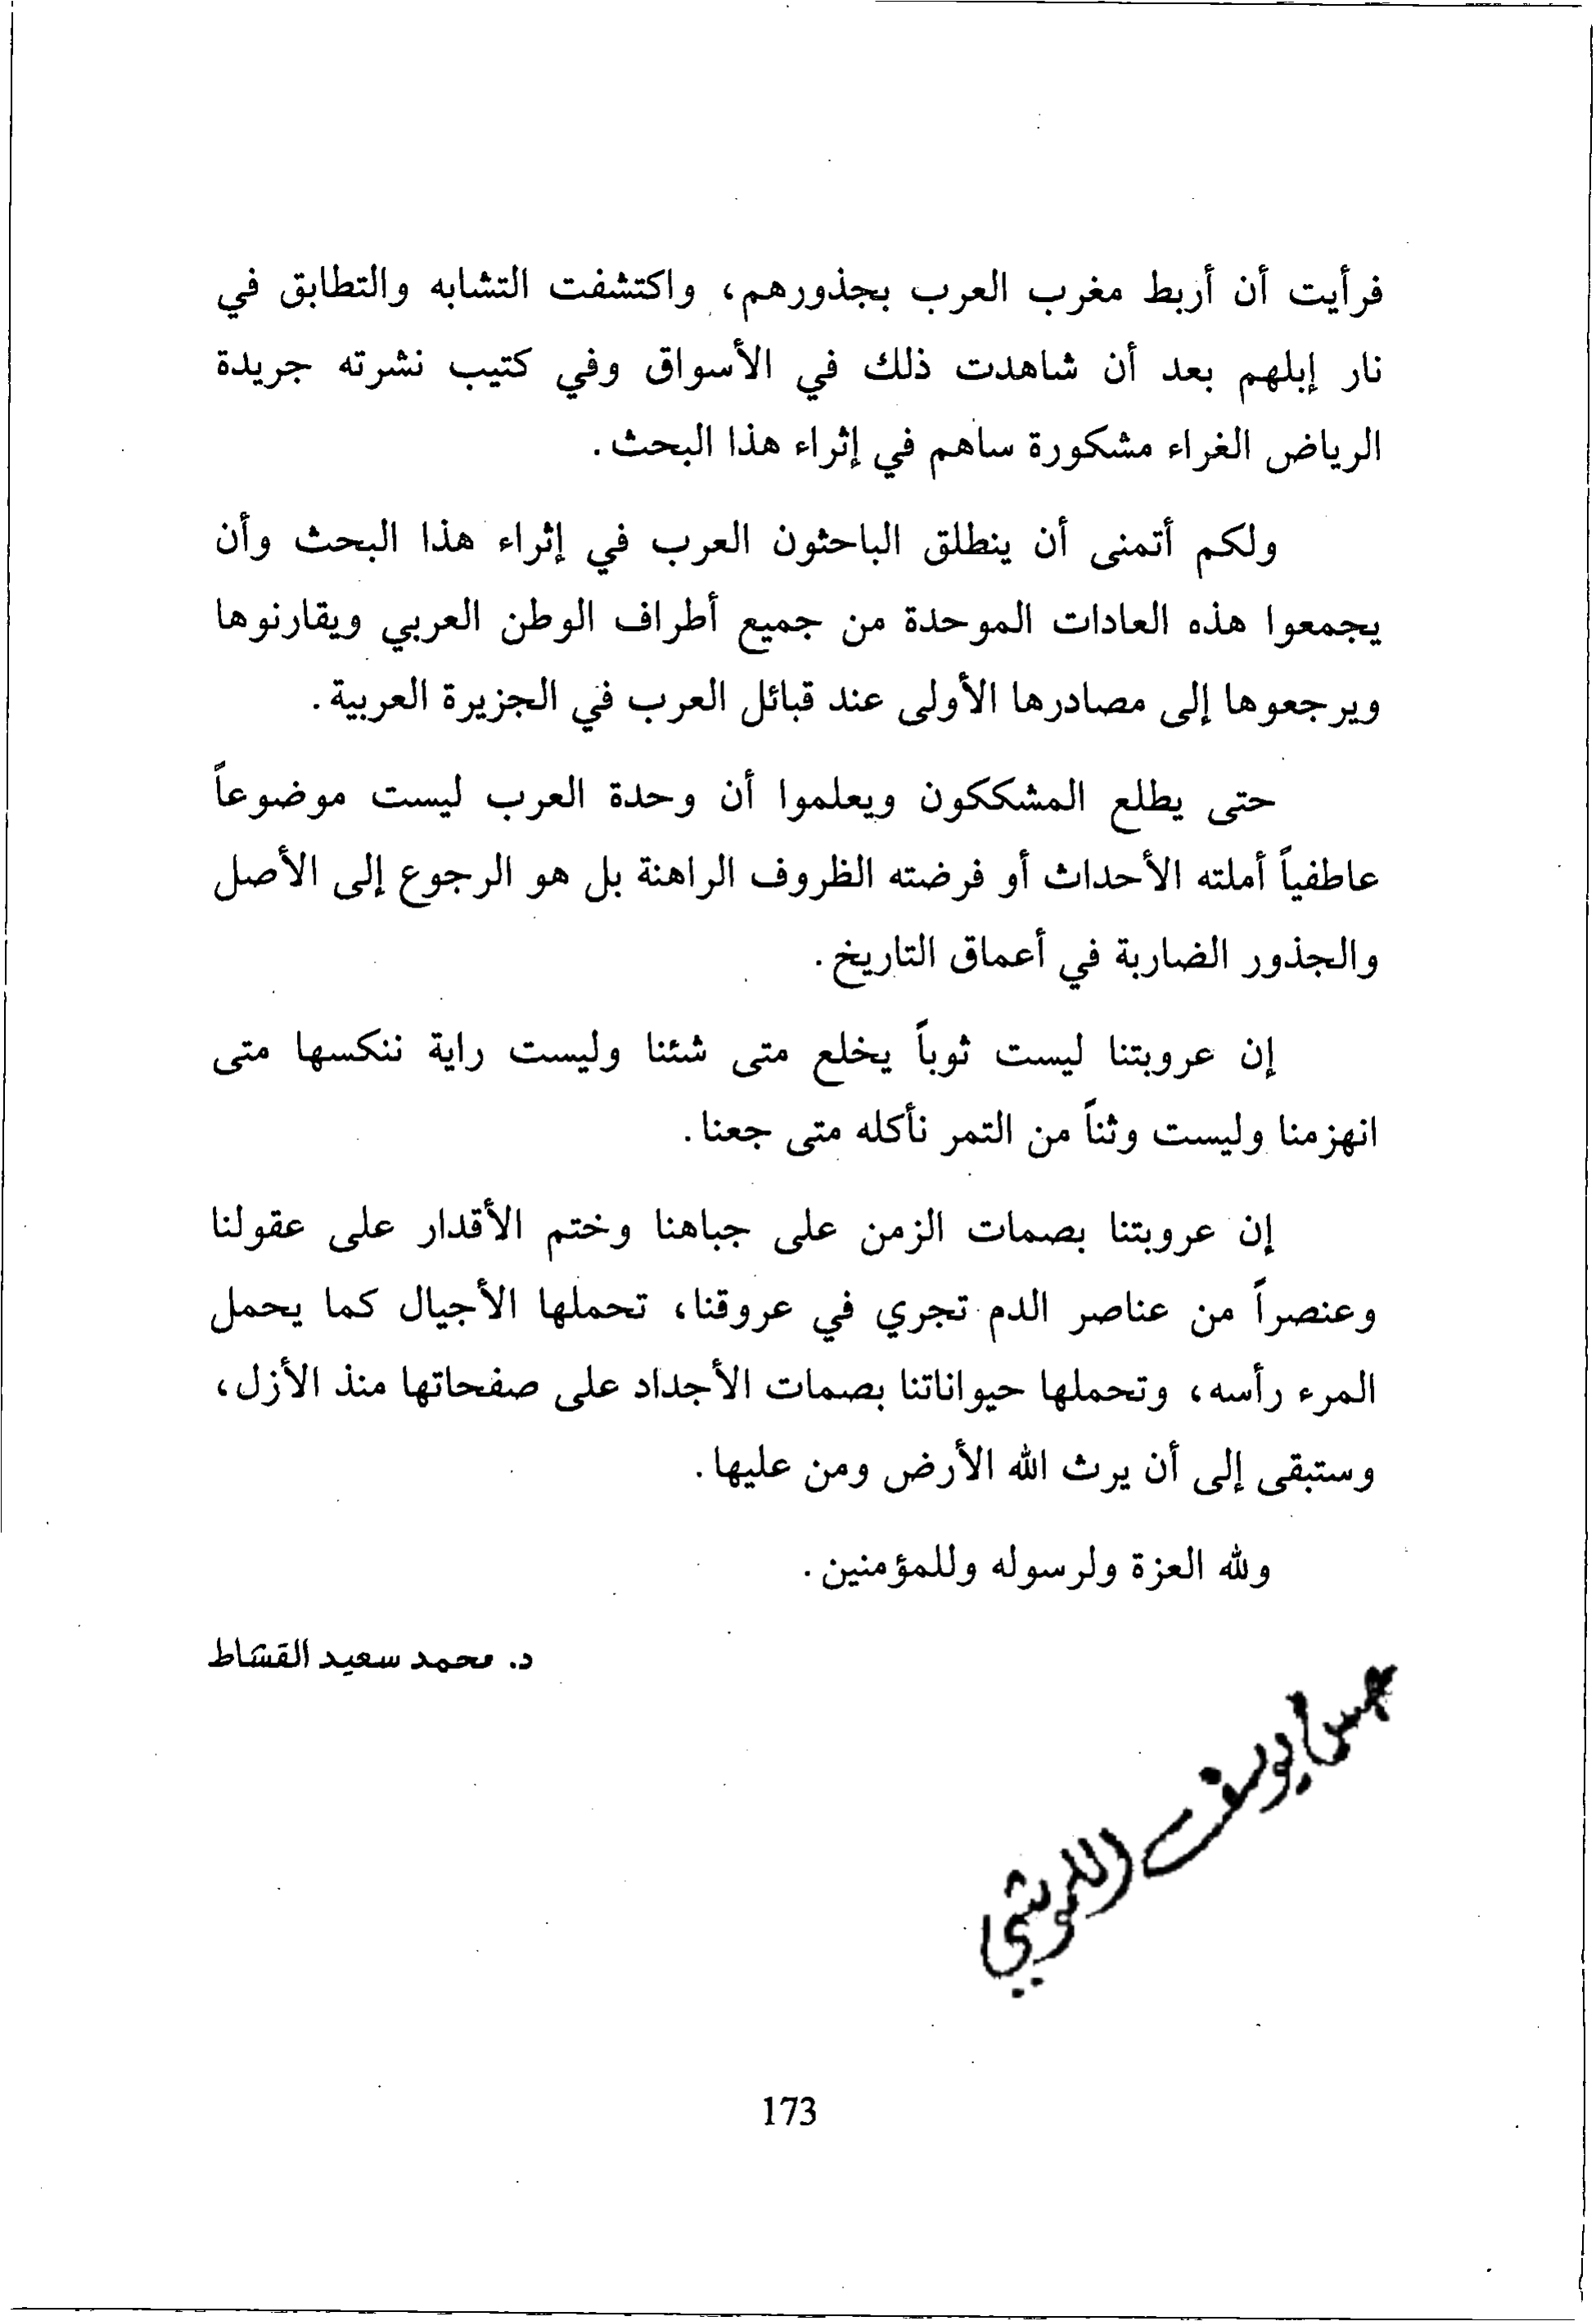 فرأيت أن أربط مغرب العرب بجذورهم، واكتشفت التشابه والتطابق في
نار إبلهم بعد أن شاهدت ذلك في الأسواق وفي كتيب نشرته جريدة
الرياض الغراء مشكورة ساهم في إثراء هذا البحث.
ولكم أتمنى أن ينطلق الباحثون العرب في إثراء هذا البحث وأن
يجمعوا هذه العادات الموحدة من جميع أطراف الوطن العربي ويقارنوها
ويرجعوها إلى مصادرها الأولى عند قبائل العرب في الجزيرة العربية.
حتى يطلع المشككون ويعلموا أن وحدة العرب ليست موضوعاً
عاطفياً أملته الأحداث أو فرضته الظروف الراهنة بل هو الرجوع إلى الأصل
والجذور الضاربة في أعماق التاريخ.
إن عروبتنا ليست ثوباً يخلع متى شئنا وليست راية ننكسها متى
انهزمنا وليست وثناً من التمر نأكله متى جعنا.
إن عروبتنا بصمات الزمن على جباهنا وختم الأقدار على عقولنا
وعنصراً من عناصر الدم تجري في عروقنا، تحملها الأجيال كما يحمل
المرء رأسه، وتحملها حيواناتنا بصمات الأجداد على صفحاتها منذ الأزل،
وستبقى إلى أن يرث الله الأرض ومن عليها.
ولله العزة ولرسوله وللمؤمنين.
د. محمد سعيد القشاط
يوسف
173